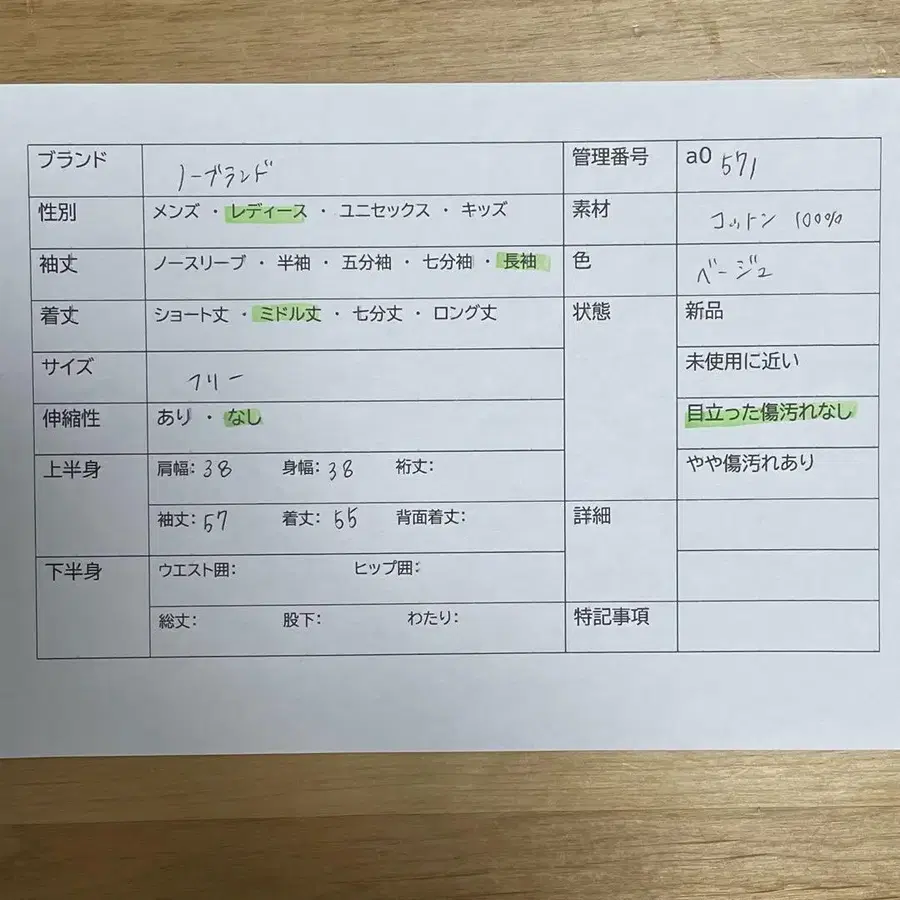 ブランド ノーブランド 管理番号 a0 571
性別 メンズ ・ レディース ・ ユニセックス ・ キッズ 素材 コットン 100%
袖丈 ノースリーブ ・ 半袖 ・ 五分袖 ・ 七分袖 ・ 長袖 色 ベージュ
着丈 ショート丈 ・ ミドル丈 ・ 七分丈 ・ ロング丈 状態 新品
サイズ フリー 未使用に近い
伸縮性 あり ・ なし 目立った傷汚れなし
上半身 肩幅: 38 身幅: 38 裄丈: やや傷汚れあり
袖丈: 57 着丈: 55 背面着丈: 詳細
下半身 ウエスト囲: ヒップ囲:
総丈: 股下: わたり: 特記事項